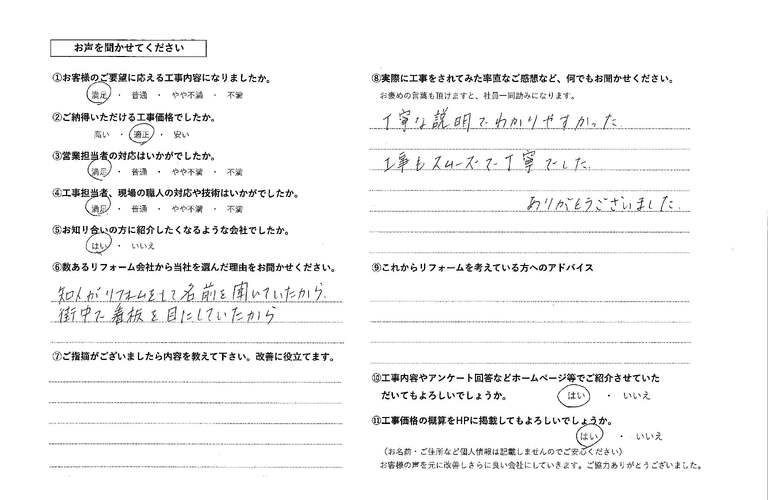 お声を聞かせてください
①お客様のご要望に応える工事内容になりましたか。
満足 ・ 普通 ・ やや不満 ・ 不満
②ご納得いただける工事価格でしたか。
高い ・ 適正 ・ 安い
③営業担当者の対応はいかがでしたか。
満足 ・ 普通 ・ やや不満 ・ 不満
④工事担当者、現場の職人の対応や技術はいかがでしたか。
満足 ・ 普通 ・ やや不満 ・ 不満
⑤お知り合いの方に紹介したくなるような会社でしたか。
はい ・ いいえ
⑥数あるリフォーム会社から当社を選んだ理由をお聞かせください。
知人がリフォームをして名前を聞いていたから.
街中で看板を目にしていたから
⑦ご指摘がございましたら内容を教えて下さい。改善に役立てます。
⑧実際に工事をされてみた率直なご感想など、何でもお聞かせください。
お褒めの言葉も頂けますと、社員一同励みになります。
丁寧な説明でわかりやすかった.
工事もスムーズで丁寧でした.
ありがとうございました.
⑨これからリフォームを考えている方へのアドバイス
⑩工事内容やアンケート回答などホームページ等でご紹介させていた
だいてもよろしいでしょうか。 はい ・ いいえ
⑪工事価格の概算をHPに掲載してもよろしいでしょうか。
はい ・ いいえ
（お名前・ご住所など個人情報は記載しませんのでご安心ください）
お客様の声を元に改善しさらに良い会社にしていきます。ご協力ありがとうございました。